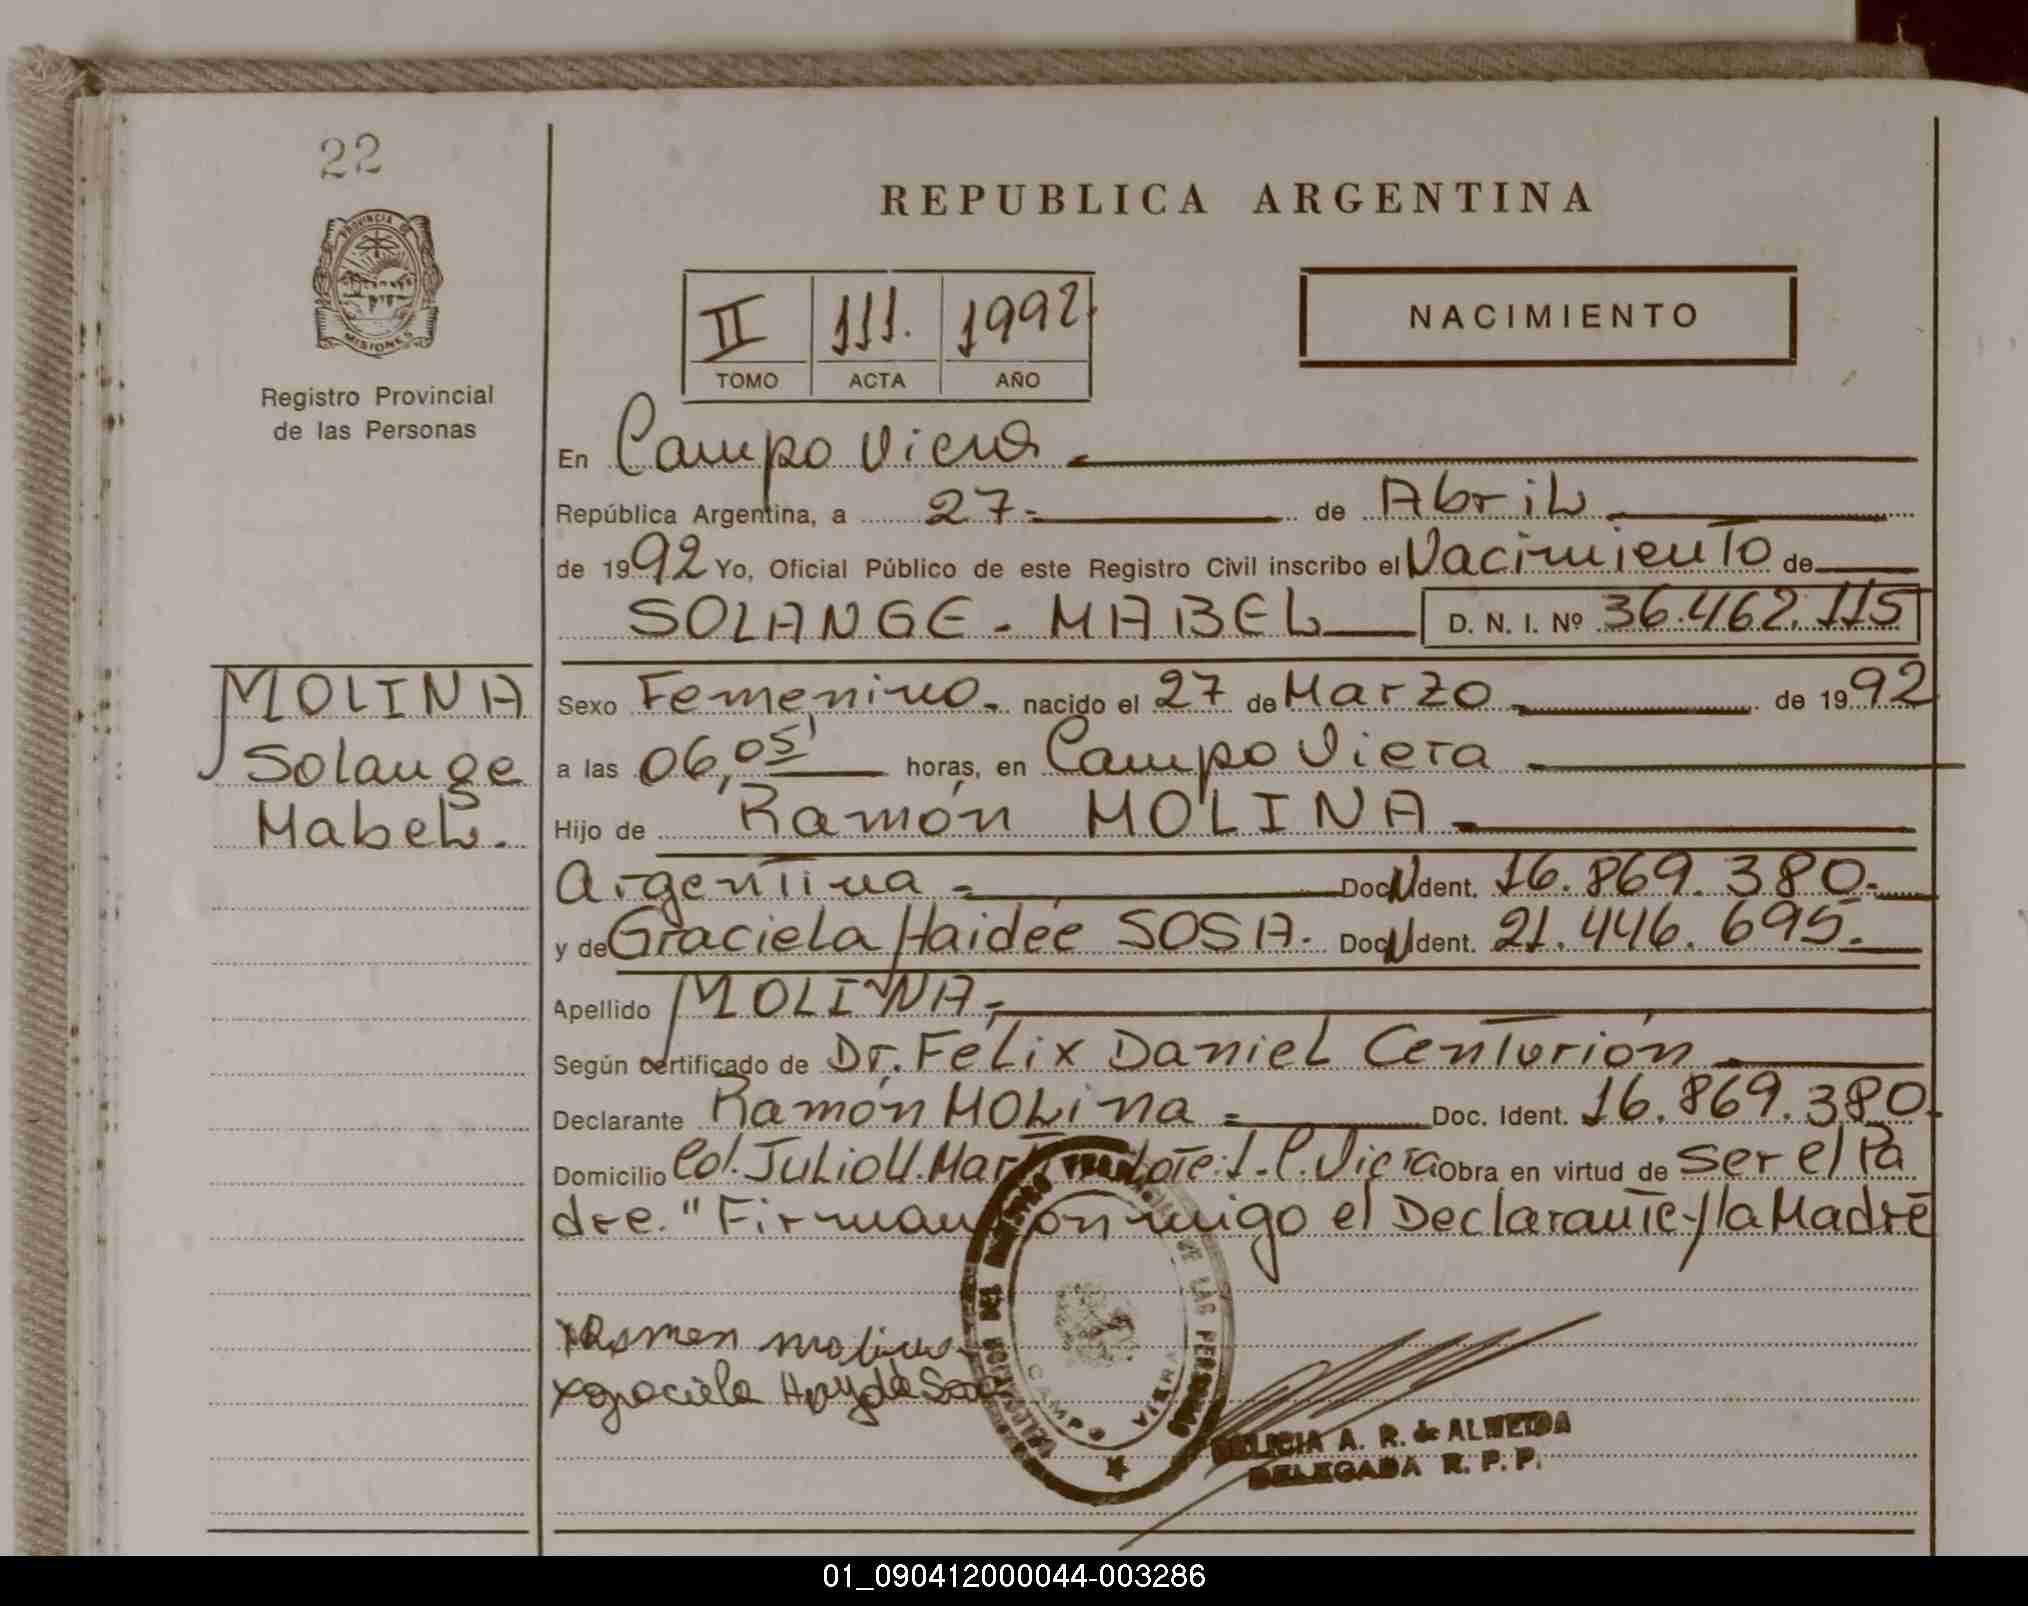 22
PROVINCIA DE
MISIONES
Registro Provincial
de las Personas
REPUBLICA ARGENTINA
II 111. 1992.
TOMO ACTA AÑO
NACIMIENTO
En Campo Viera
República Argentina, a 27 de Abril
de 1992 Yo, Oficial Público de este Registro Civil inscribo el Nacimiento de
SOLANGE - MABEL D. N. I. Nº 36.462.115
MOLINA
Solange
Mabel.
Sexo Femenino. nacido el 27 de Marzo de 1992
a las 06,05' horas, en Campo Viera
Hijo de Ramón MOLINA
Argentina Doc. Ident. 16.869.380.
y de Graciela Haidée SOSA. Doc. Ident. 21.446.695.
Apellido MOLINA
Según certificado de Dr. Felix Daniel Centurión
Declarante Ramón MOLina Doc. Ident. 16.869.380.
Domicilio Col. Julio U. Lote: 1. C. Viera Obra en virtud de ser el Pa
dre. "Firman conmigo el Declarante y la Madre
Ramon molina
graciela Hayde Sosa
DELEGACION DEL REGISTRO DE LAS PERSONAS
CAMPO VIERA
FELICIA A. R. de ALMEIDA
DELEGADA R. P. P.
01_090412000044-003286